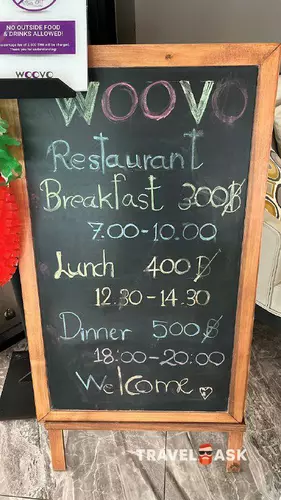 NO OUTSIDE FOOD
& DRINKS ALLOWED!
WOOVO
WOOVO
Restaurant
Breakfast 300฿
7.00-10.00
Lunch 400฿
12.30-14.30
Dinner 500฿
18:00-20:00
Welcome
TRAVEL ASK